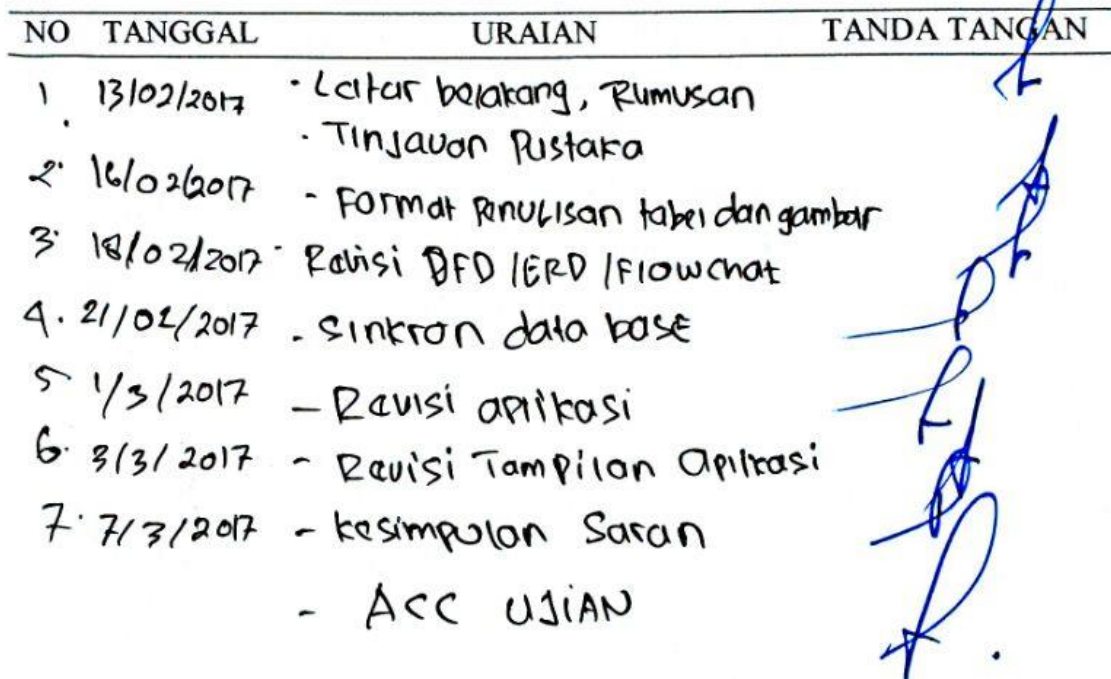 NO TANGGAL URAIAN TANDA TANGAN
1. 13/02/2017 - Latar belakang, Rumusan
- Tinjauan Pustaka
2. 16/02/2017 - Format Penulisan tabel dan gambar
3. 18/02/2017 - Revisi DFD /ERD /Flowchat
4. 21/02/2017 - Sinkron data base
5. 1/3/2017 - Revisi aplikasi
6. 3/3/2017 - Revisi Tampilan Aplikasi
7. 7/3/2017 - kesimpulan Saran
- ACC UJIAN